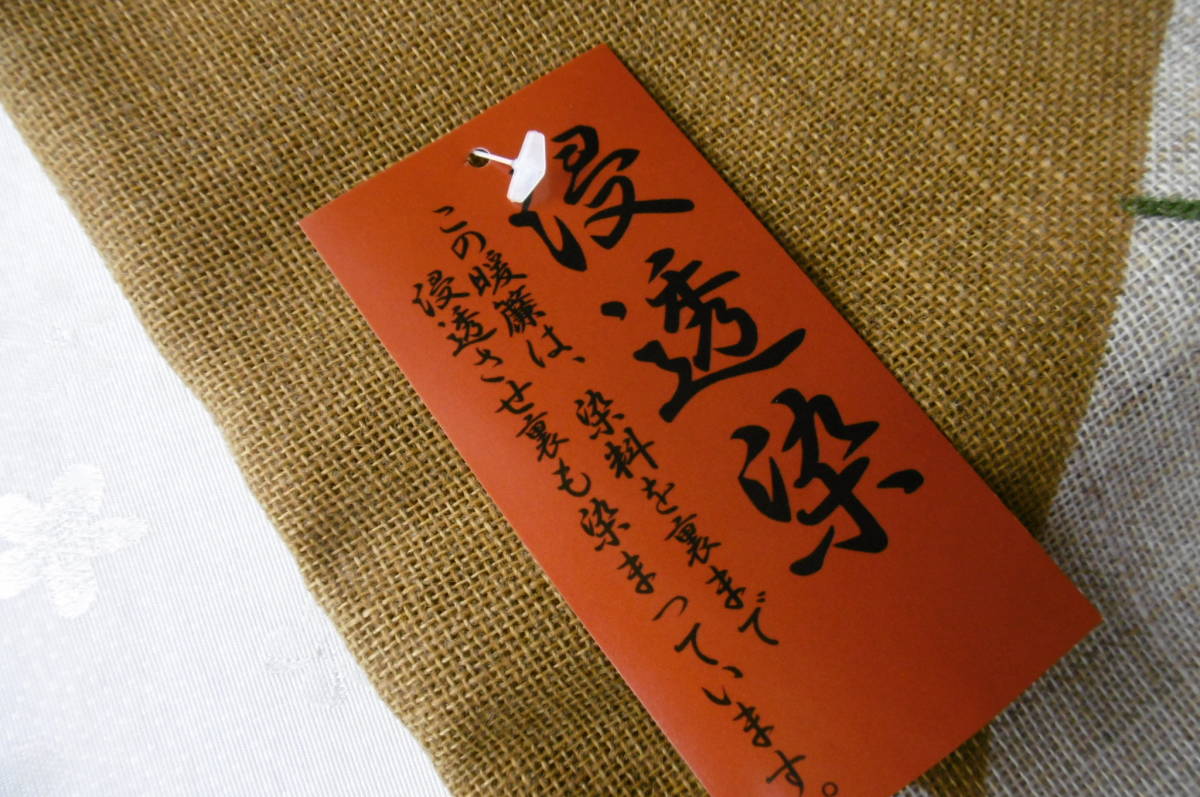 浸透染
この暖簾は、染料を裏まで
浸透させ裏も染まっています。